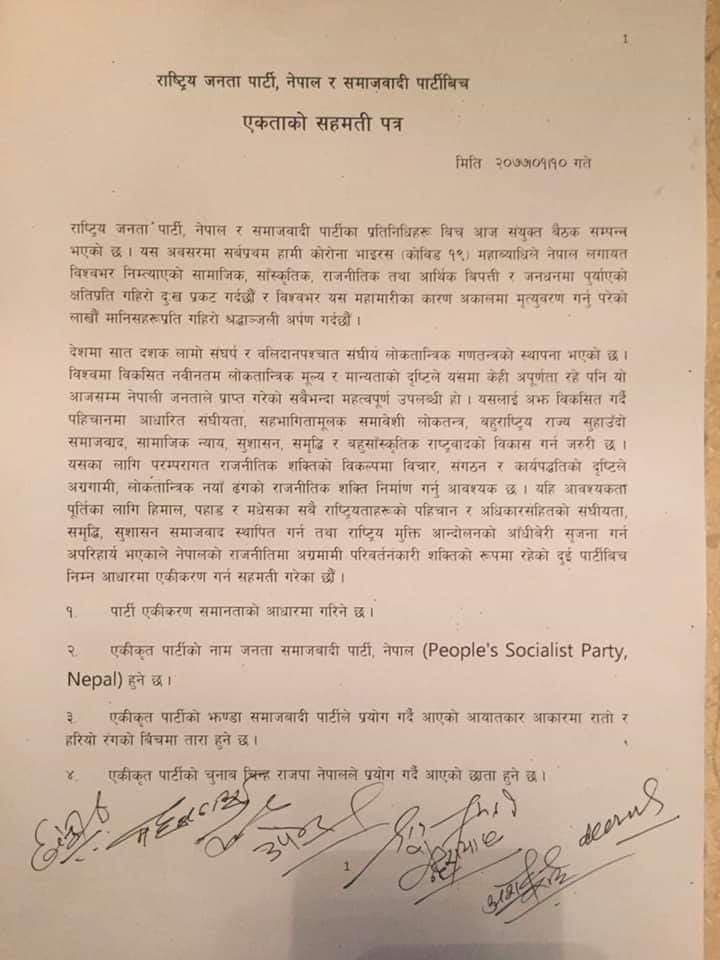 1
राष्ट्रिय जनता पार्टी, नेपाल र समाजवादी पार्टीबिच
एकताको सहमती पत्र
मिति २०७७।०१।१० गते
राष्ट्रिय जनता पार्टी, नेपाल र समाजवादी पार्टीका प्रतिनिधिहरू बिच आज संयुक्त बैठक सम्पन्न
भएको छ । यस अवसरमा सर्वप्रथम हामी कोरोना भाइरस (कोविड १९) महाव्याधिले नेपाल लगायत
विश्वभर निम्त्याएको सामाजिक, साँस्कृतिक, राजनीतिक तथा आर्थिक बिपत्ती र जनधनमा पुर्याएको
क्षतिप्रति गहिरो दुःख प्रकट गर्दछौँ र विश्वभर यस महामारीका कारण अकालमा मृत्युवरण गर्नु परेको
लाखौँ मानिसहरूप्रति गहिरो श्रद्धाञ्जली अर्पण गर्दछौँ ।
देशमा सात दशक लामो संघर्ष र वलिदानपश्चात संघीय लोकतान्त्रिक गणतन्त्रको स्थापना भएको छ ।
विश्वमा विकसित नवीनतम लोकतान्त्रिक मूल्य र मान्यताको दृष्टिले यसमा केही अपूर्णता रहे पनि यो
आजसम्म नेपाली जनताले प्राप्त गरेको सबैभन्दा महत्वपूर्ण उपलब्धी हो । यसलाई अझ विकसित गर्दै
पहिचानमा आधारित संघीयता, सहभागितामूलक समावेशी लोकतन्त्र, बहुराष्ट्रिय राज्य सुहाउँदो
समाजवाद, सामाजिक न्याय, सुशासन, समृद्धि र बहुसाँस्कृतिक राष्ट्रवादको विकास गर्न जरुरी छ ।
यसका लागि परम्परागत राजनीतिक शक्तिको विकल्पमा विचार, संगठन र कार्यपद्धतिको दृष्टिले
अग्रगामी, लोकतान्त्रिक नयाँ ढंगको राजनीतिक शक्ति निर्माण गर्नु आवश्यक छ । यहि आवश्यकता
पूर्तिका लागि हिमाल, पहाड र मधेसका सबै राष्ट्रियताहरूको पहिचान र अधिकारसंहितको संघीयता,
समृद्धि, सुशासन समाजवाद स्थापित गर्न तथा राष्ट्रिय मुक्ति आन्दोलनको आँधीबेरी सृजना गर्न
अपरिहार्य भएकाले नेपालको राजनीतिमा अग्रमामी परिवर्तनकारी शक्तिको रूपमा रहेको दुई पार्टीबिच
निम्न आधारमा एकीकरण गर्न सहमती गरेका छौँ ।
१. पार्टी एकीकरण समानताको आधारमा गरिने छ ।
२. एकीकृत पार्टीको नाम जनता समाजबादी पार्टी, नेपाल (People's Socialist Party,
Nepal) हुने छ ।
३. एकीकृत पार्टीको झण्डा समाजबादी पार्टीले प्रयोग गर्दै आएको आयातकार आकारमा रातो र
हरियो रंगको बिंचमा तारा हुने छ ।
४. एकीकृत पार्टीको चुनाब चिन्ह राजपा नेपालले प्रयोग गर्दै आएको छाता हुने छ ।
1